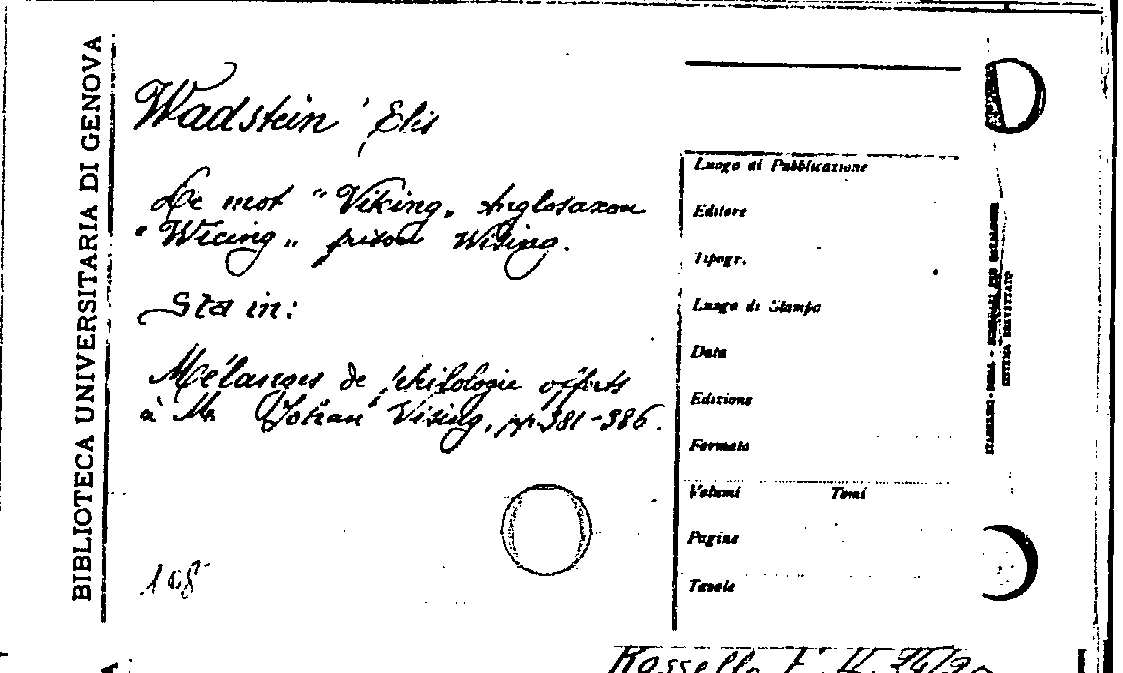 BIBLIOTECA UNIVERSITARIA DI GENOVA
Wadstein, Elis
Le mot "Viking" Anglosaxon
"Wicing" frison Wising.
Sta in:
Mélanges de philologie offerts
à Mr Johan Vising, pp. 381-386.
108
Luogo di Pubblicazione
Editore
Tipogr.
Luogo di Stampa
Data
Edizione
Formato
Volumi Tomi
Pagine
Tavole
Rossello F. II.